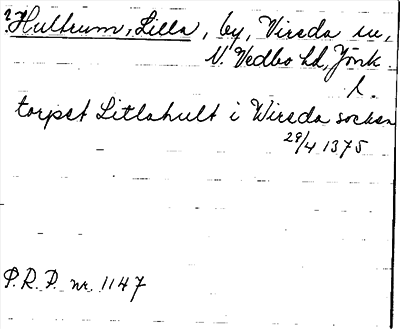 ? Hultrum, Lilla, by, Vireda sn,
N. Vedbo hd, Jönk.
l.
torpet Litlahult i Wireda socken
29/4 1375
P.R.P. nr. 1147